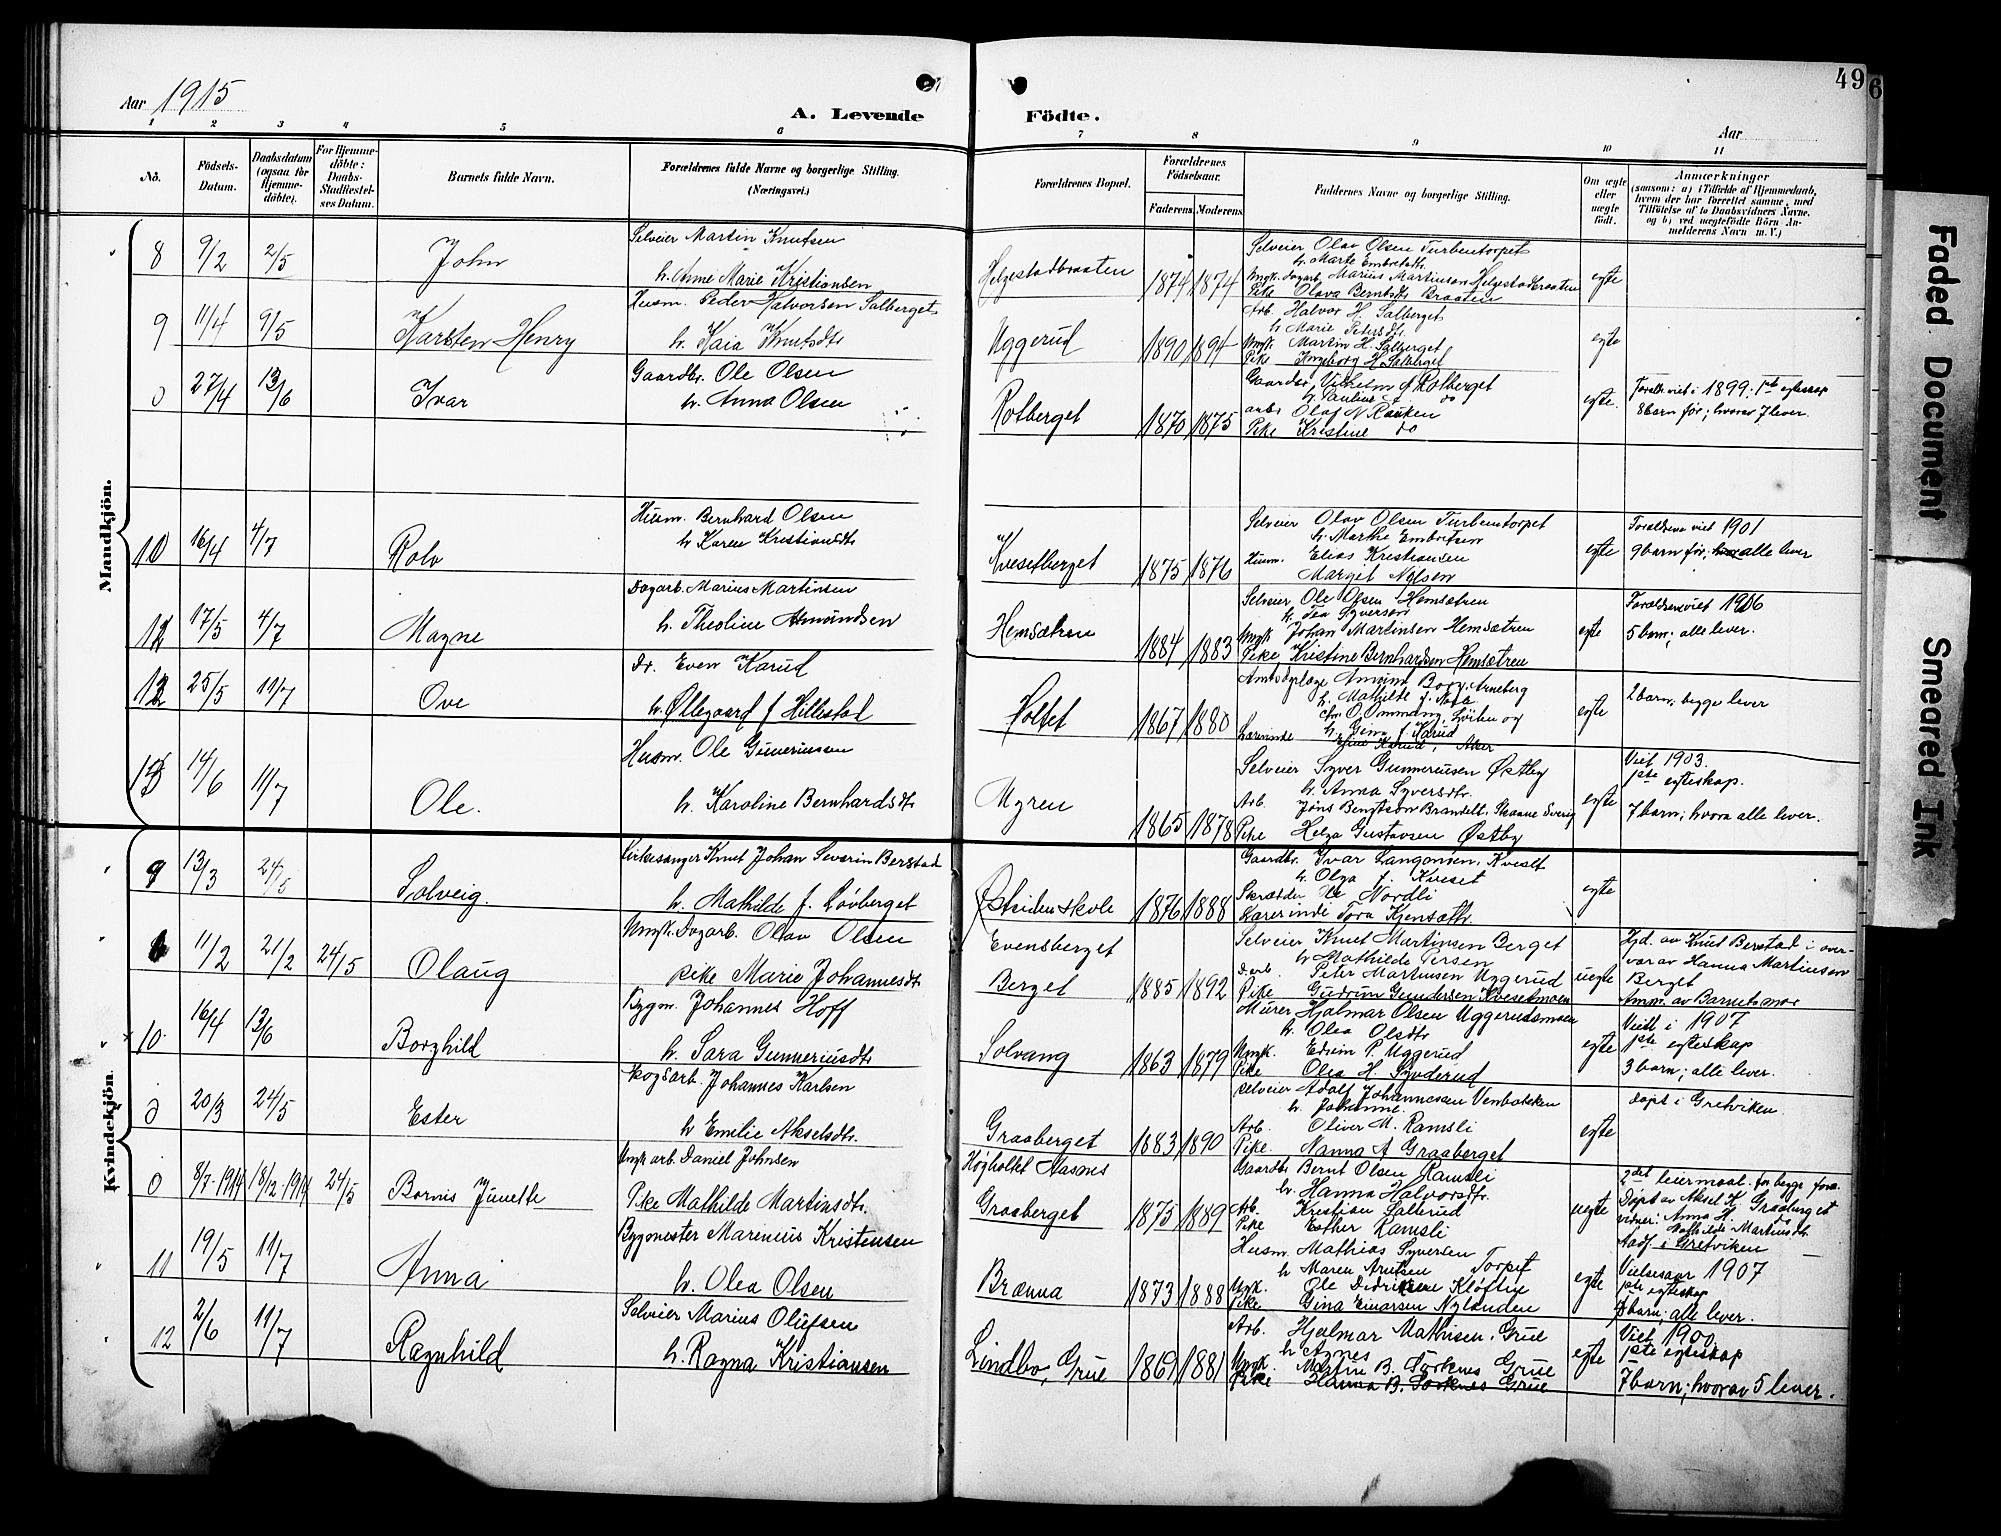 Aar 1915
A. Levende Födte.
Aar
49
6
1 2 3 4 5 6 7 8 9 10 11
No.
Födsels-Datum.
Daabsdatum (ogsaa for Hjemme-döbte).
For Hjemme-döbte: Daabs-Stadfæstel-ses Datum.
Barnets fulde Navn.
Forældrenes fulde Navne og borgerlige Stilling.
(Næringsvei.)
Forældrenes Bopæl.
Forældrenes Födselsaar.
Faderens Moderens
Faddernes Navne og borgerlige Stilling.
Om ægte eller uægte födt.
Anmærkninger
(saasom: a) i Tilfælde af Hjemmedaab, hvem der har forrettet samme, med Tilföielse af to Daabsvidners Navne, og b) ved uægtefödte Börn An-melderens Navn m. V.)
Mandkjön.
8 9/2 2/5 John
Selveier Martin Knutsen
h. Anne Marie Kristiansen
Helgestadbraaten 1874 1874
Selveier Olav Olsen Turbentorpet
h. Marte Embretsdtr.
Ungk. Dagarb. Marius Martinsen Helgestadbraaten
Pike Olava Berntsdtr Braaten
egte
9 11/4 9/5 Karsten Henry
Husm. Peder Halvorsen Salberget
h. Kaia Knutsdtr
Uggerud 1890 1894
Arb. Halvor H. Salberget
h Marie Petersdtr.
Ungk. Martin H. Salberget
Pike Ingeborg H. Salberget
egte
0 27/4 13/6 Ivar
Gaardbr. Ole Olsen
h. Anna Olsen
Rotberget 1870 1875
Gaardbr. Vilhelm A Rotberget
h. Pauline A. do
arb. Olaf N. Rauken
Pike Kristine do
egte.
Foreldr. viet i 1899. 1ste egteskap
8 barn før; hvorav 7 lever.
10 16/4 4/7 Rolv
Husm. Bernhard Olsen
h Karen Kristiansdtr
Kvesetberget 1875 1876
Selveier Olav Olsen Turbentorpet
h. Marthe Embretsen
Husm. Elias Kristiansen
Marget Nilsen
egte
Foreldrene viet 1901
9 barn før; alle lever
12 17/5 4/7 Magne
Dagarb. Marius Martinsen
h. Theoline Amundsen
Hemsætren 1884 1883
Selveier Ole Olsen Hemsætren
h. Tea Syversen
Ungk Johan Martinsen Hemsætren
Pike Kristine Bernhardsen Hemsætren
egte
Forældrene viet 1906
5 barn; alle lever.
12 25/5 11/7 Ove
Dr. Even Karud
h. Øllegaard f Hillestad
Holtet 1867 1880
h. Mathilde f.
Chr. O. Ommang, Løiten og
h Gina f. Karud
Lærerinde Karud, Aker
egte
2 barn; begge lever
13 14/6 11/7 Ole.
Husm. Ole Gunneriusen
h. Karoline Bernhardsdtr
Myren 1865 1878
Selveier Syver Gunneriusen Østby
h. Anna Syversdtr.
Arb. Jøns Bengtson Brandelt, Skaane Sverig
Pike Helga Gustavsen Østby
egte
Viet 1903.
1ste egteskap.
7 barn; hvorav alle lever.
Kvindekjön.
9 13/3 24/5 Solveig.
Kirkesanger Knut Johan Severin Berstad
h. Mathilde f. Løvberget
Østsiden skole 1876 1888
Gaardbr. Ivar Langonsen, Kveset
h. Olga f. Kveset
Skrædder Nordli
Lærerinde Tora Kjensæth.
egte
11/2 21/2 24/5 Olaug
Ungk. Dagarb. Olav Olsen
pike Marie Johannesdtr
Evensberget
Berget 1885 1892
Selveier Knut Martinsen Berget
h Mathilde Persen
D.arb. Peter Martinsen Uggerud
Pike Gudrun Gundersen Kvesetmoen
uegte
Hjd. av Knut Berstad i over-
vær av Hanna Martinsen
Berget
Anm. av Barnets mor
10. 16/4 13/6 Borghild
Bygm. Johannes Hoff
h. Sara Gunneriusdtr
Solvang 1863 1879
Murer Hjalmar Olsen Uggerudsmoen
h. Olea Olsdtr
Ungk. Edvin P. Uggerud
Pike Olea H. Synderud
egte
Viet i 1907
1ste egteskap
3 barn; alle lever.
0 20/3 24/5 Ester
Skogsarb. Johannes Karlsen
h Emelie Akselsdtr.
Graaberget 1883 1890
Selveier Adolf Johannesen Venbotsken
h. Johanne.
Arb. Oliver M. Ramsli
Pike. Nanna A Graaberget
egte
døpt i Gretviken.
0 8/7-1914 18/12-1914 24/5 Bornis Junette
Ungk arb. Daniel Johnsen
Pike Mathilde Martinsdtr.
Høgholtet Aasnes
Graaberget 1875 1889
Gaardbr Bernt Olsen Ramsli
h. Hanna Halvorsdtr.
Arb. Kristian Sallerud
Pike Esther Ramsli
uegte
2det leiermaal for begge foræ.
Døpt av Aksel K. Graaberget
vidner: Anna H. do
Mathilde Martinsdtr
Aadf. i Gretviken
11 19/5 11/7 Anna
Bygmester Marenius Kristensen
h. Olea Olsen
Brænna 1873 1888
Husm. Mathias Syversen
h Maren Arntsen Torpet
Ungk. Ole Didriksen Kløften
Pike Gina Einarsen Nylænden
egte
Vielsesaar 1907
1ste egteskap
barn; alle lever.
12 2/6 11/7 Ragnhild
Selveier Marius Olufsen
h. Ragna Kristiansen
Lindbo, Grue 1869 1881
Arb. Hjalmar Mathisen, Grue
h Agnes
Ungk. Martin B. Sorknes Grue
Pike Hanna B. Sorknes Grue
egte
Viet 1900
1ste egteskap
7 barn; hvorav 5 lever.
Faded Document
Smeared Ink